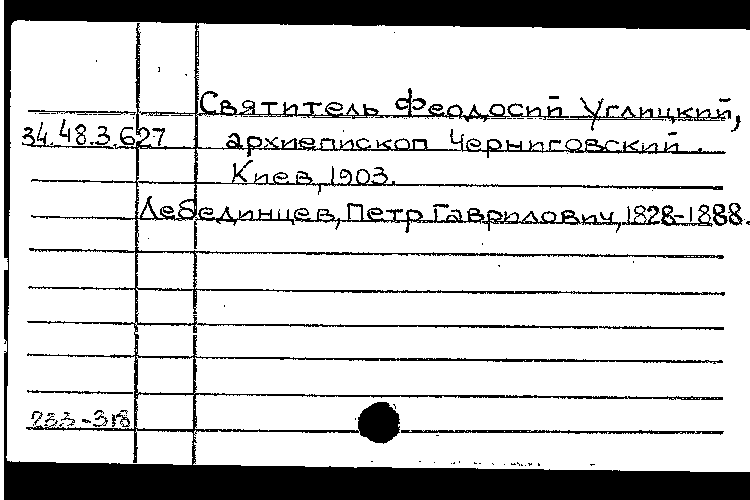 Святитель Феодосий Углицкий,
34.48.3.627 архиепископ Черниговский.
Киев, 1903.
Лебединцев, Петр Гаврилович, 1828-1888.
233-318